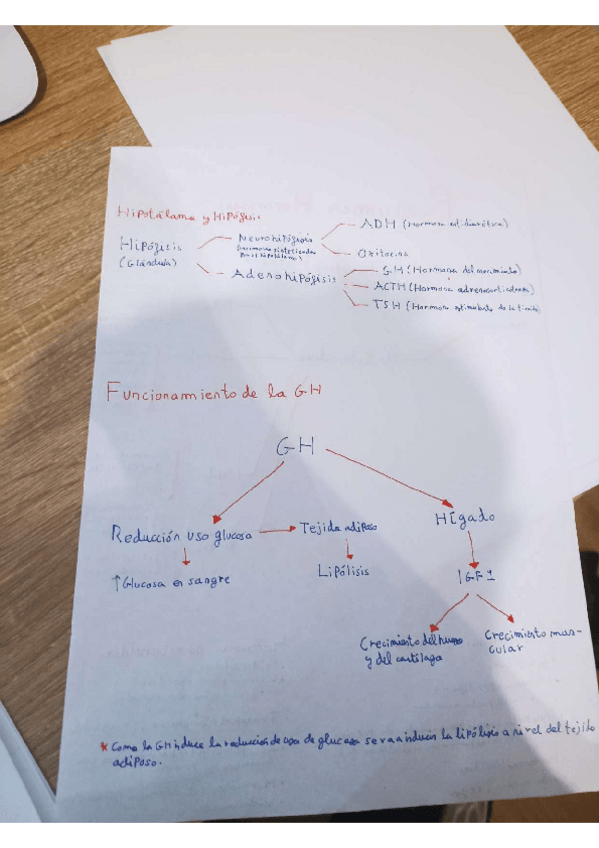 Hipotálamo y Hipófisis
ADH (Hormona antidiurética)
Hipófisis
(Glándula)
Neurohipófisis
(hormonas sintetizadas
en el hipotálamo)
Oxitocina
Adenohipófisis
GH (Hormona del crecimiento)
ACTH (Hormona adrenocorticotropa)
TSH (Hormona estimulante de la tiroides)
Funcionamiento de la GH
GH
Reducción uso glucosa
Tejido adiposo
Hígado
↑Glucosa en sangre
Lipólisis
IGF1
Crecimiento del hueso
y del cartílago
Crecimiento mus-
cular
* Como la GH induce la reducción de uso de glucosa se va a inducir la lipólisis a nivel del tejido
adiposo.